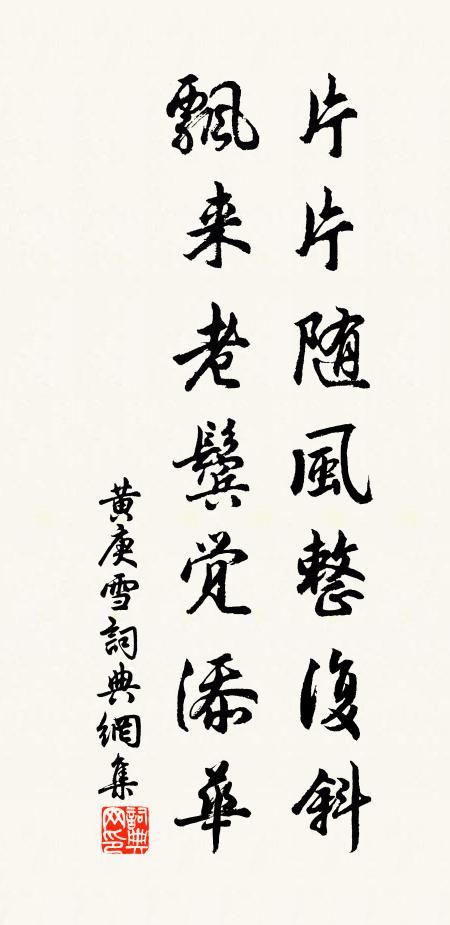 片片随風整復斜
飄来老鬓覺添華
黄庚雪詞典網集
詞典网印